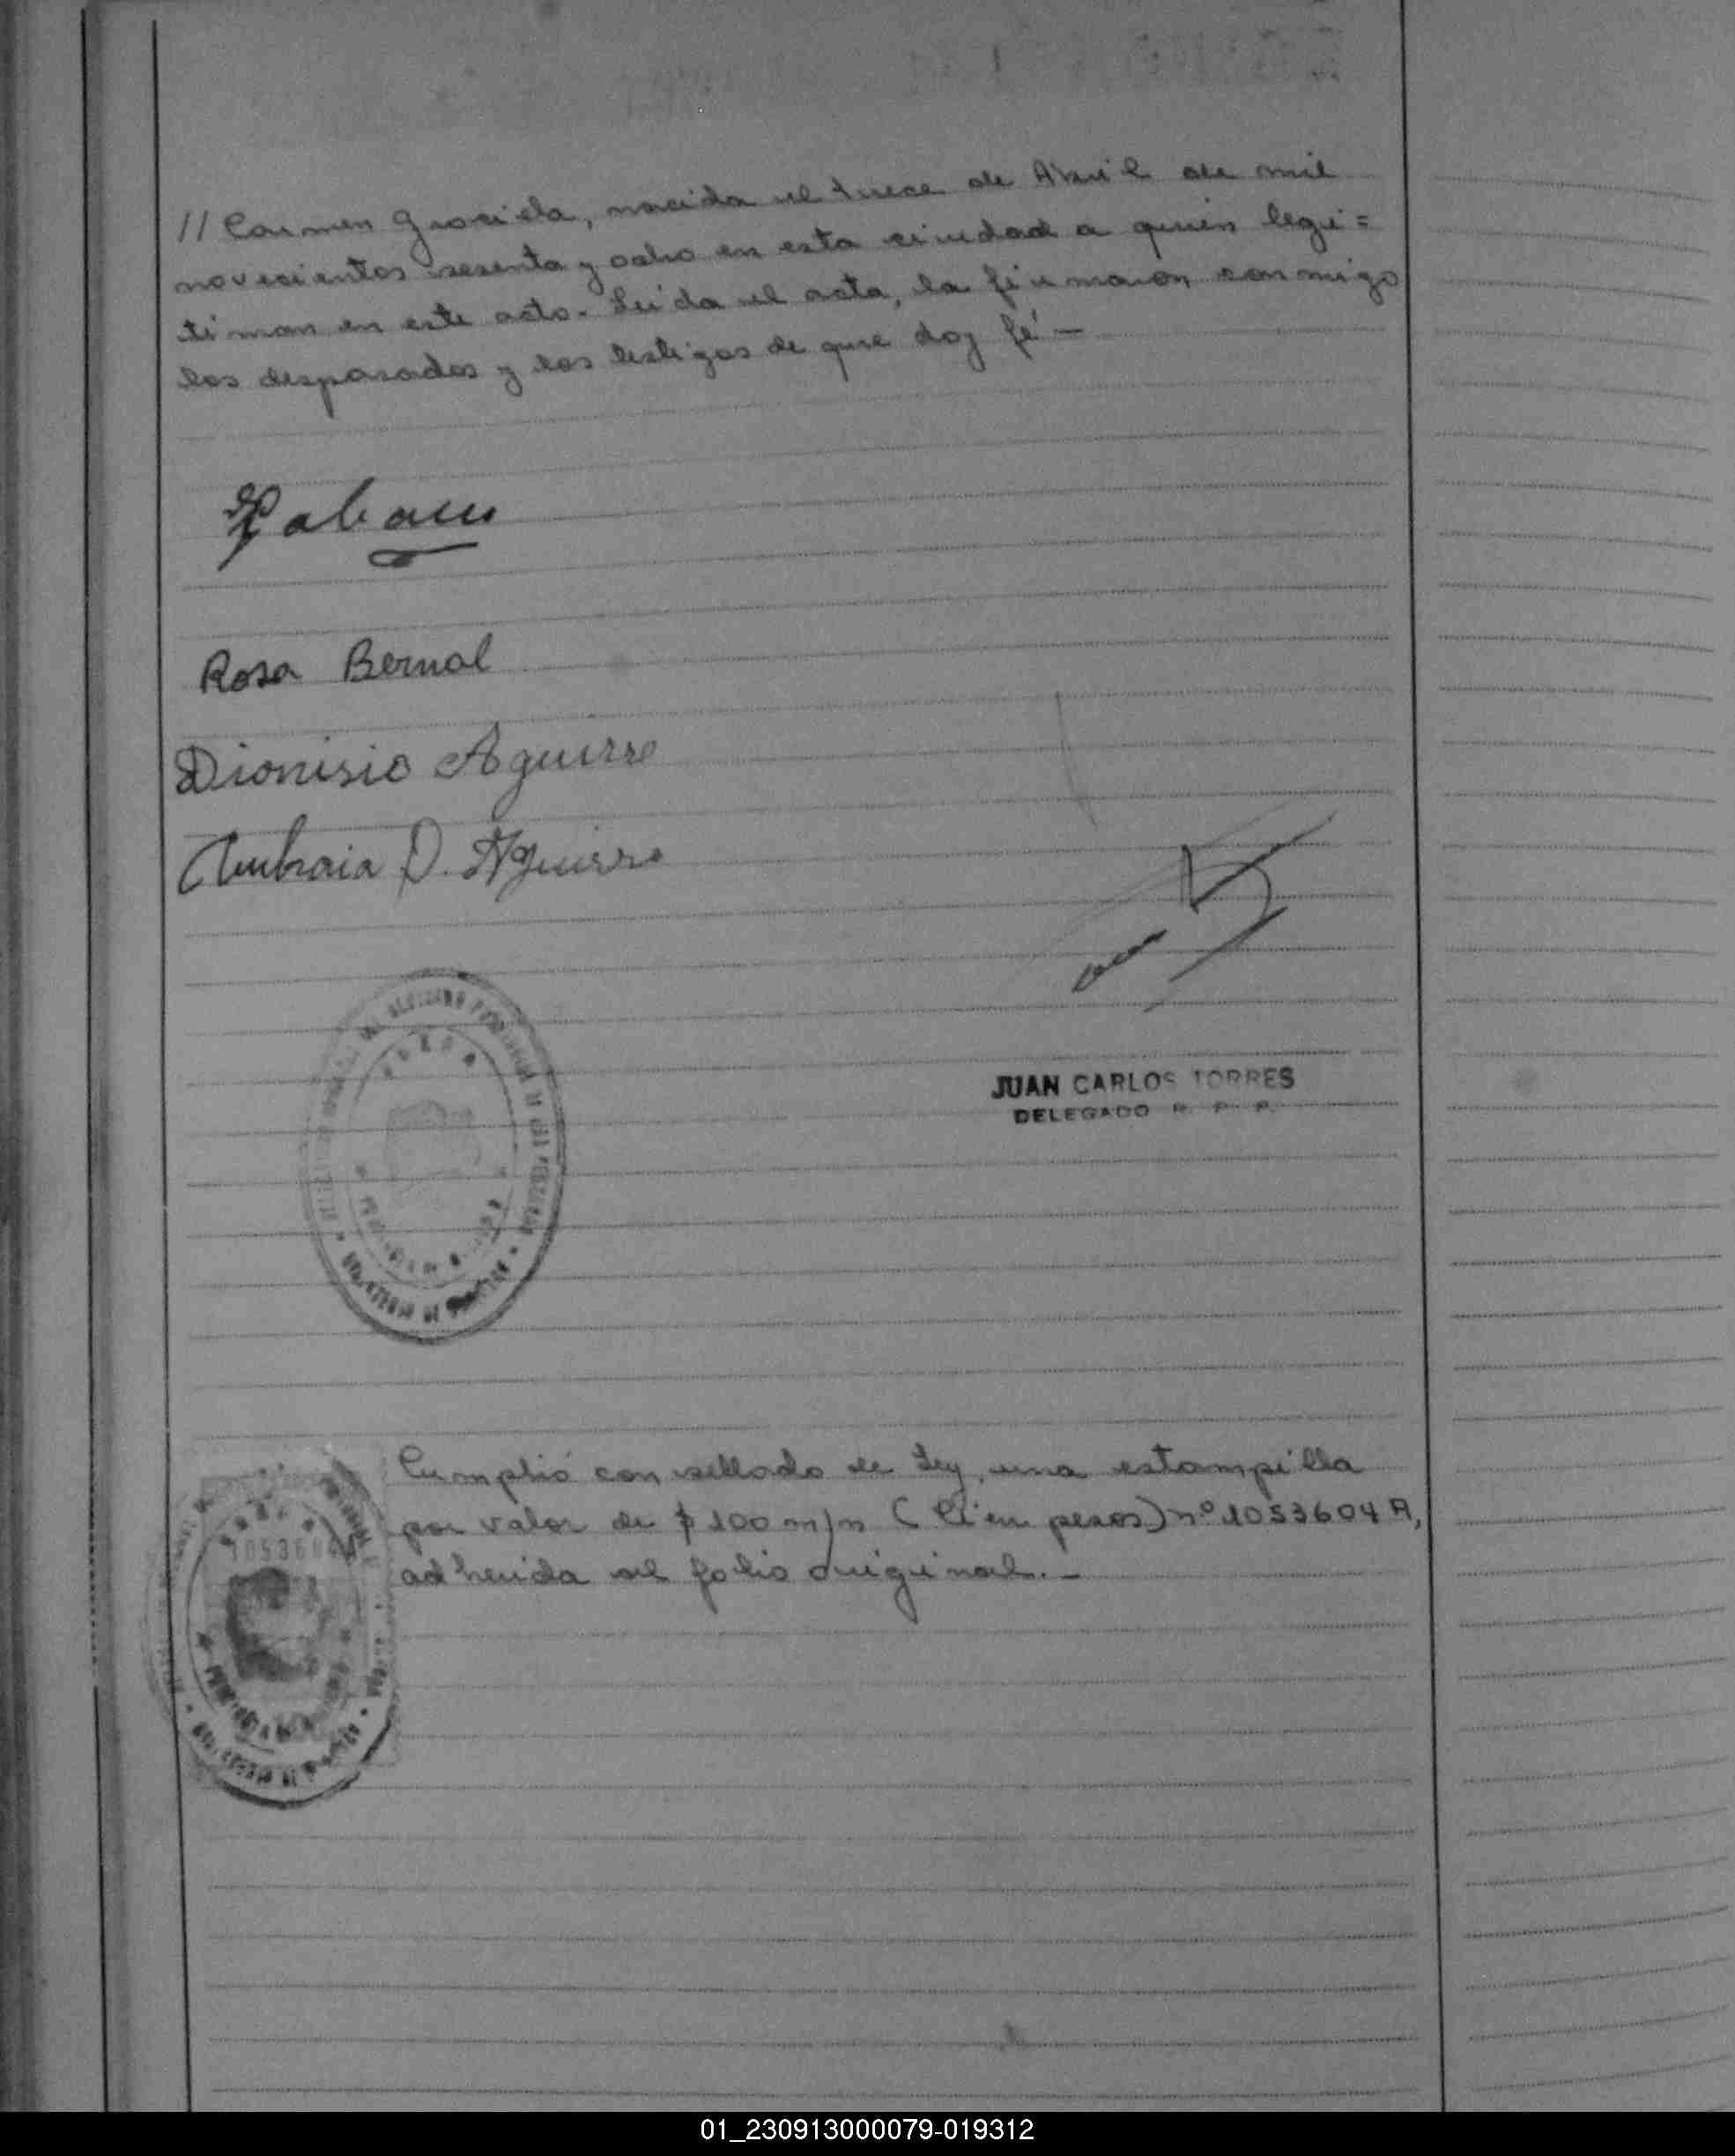 // Carmen Graciela, nacida el trece de Abril de mil
novecientos sesenta y ocho en esta ciudad a quien legi=
timan en este acto. Leída el acta, la firmaron conmigo
los desposados y los testigos de que doy fé —
Rosa Bernal
Dionisio Aguirre
D. Aguirre
JUAN CARLOS TORRES
DELEGADO R. P. P.
Cumplió con sellado de Ley, una estampilla
por valor de $ 100 m/n (Cien pesos) nº 1053604 A,
adherida al folio original. —
01_230913000079-019312